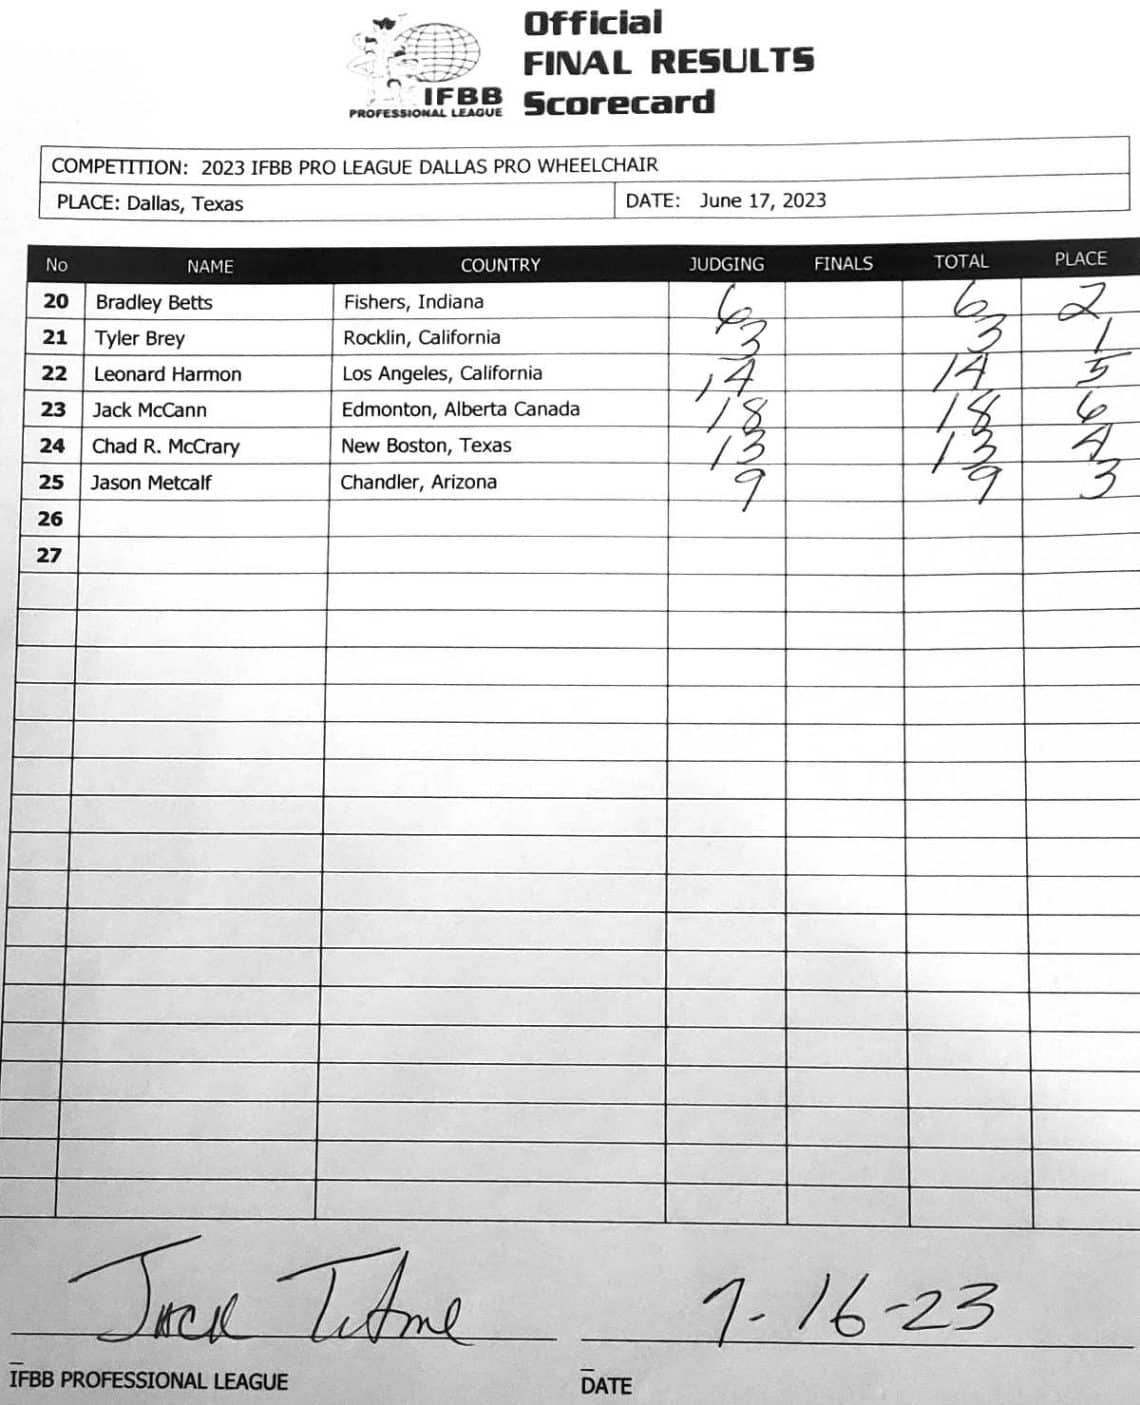 Official
FINAL RESULTS
Scorecard
IFBB
PROFESSIONAL LEAGUE
COMPETITION: 2023 IFBB PRO LEAGUE DALLAS PRO WHEELCHAIR
PLACE: Dallas, Texas DATE: June 17, 2023
No NAME COUNTRY JUDGING FINALS TOTAL PLACE
20 Bradley Betts Fishers, Indiana 6 6 2
21 Tyler Brey Rocklin, California 3 3 1
22 Leonard Harmon Los Angeles, California 14 14 5
23 Jack McCann Edmonton, Alberta Canada 18 18 6
24 Chad R. McCrary New Boston, Texas 13 13 4
25 Jason Metcalf Chandler, Arizona 9 9 3
26
27
Jack 16-23
IFBB PROFESSIONAL LEAGUE DATE